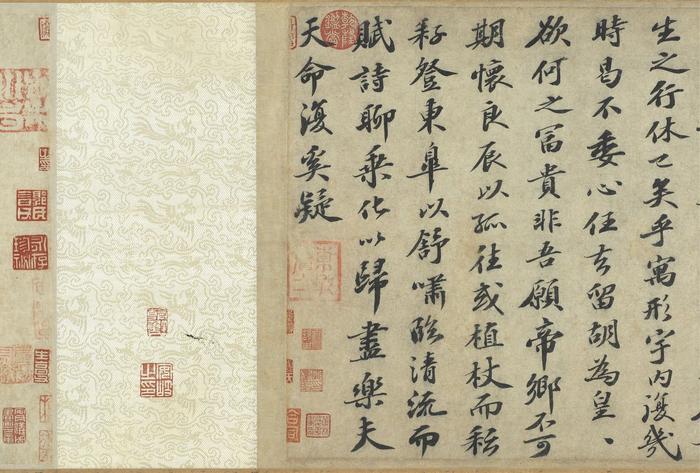 生之行休已矣乎寓形宇内復幾
時曷不委心任去留胡為皇、
欲何之富貴非吾願帝鄉不可
期懷良辰以孤往或植杖而耘
耔登東皋以舒嘯臨清流而
賦詩聊乘化以歸盡樂夫
天命復奚疑
乾隆鑑賞